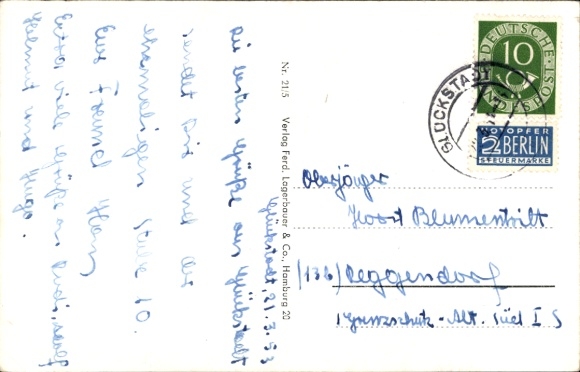 Glückstadt, 21.3.53
Die besten Grüße aus Glückstadt
sendet Dir und der
ehemaligen Stube 10.
Euer Freund Harry
Extra viele Grüße an Rudi,
Helmut und Hugo.
Nr. 2115 Verlag Ferd. Lagerbauer & Co., Hamburg 20
DEUTSCHE BUNDESPOST
10
GLÜCKSTADT
NOTOPFER
2 BERLIN
STEUERMARKE
Oberjäger
Horst Blumentritt
(13b) Deggendorf
Grenzschutz-Abt. Süd I 5